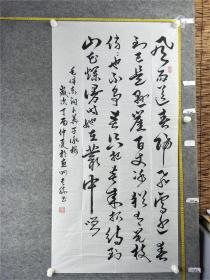 風雨送春歸飛雪迎春
到已是懸崖百丈冰犹有花枝
俏也不争春只把春来报待到
山花爛漫時她在叢中笑
毛泽东词卜算子咏梅
歲次丁酉仲夏於
书